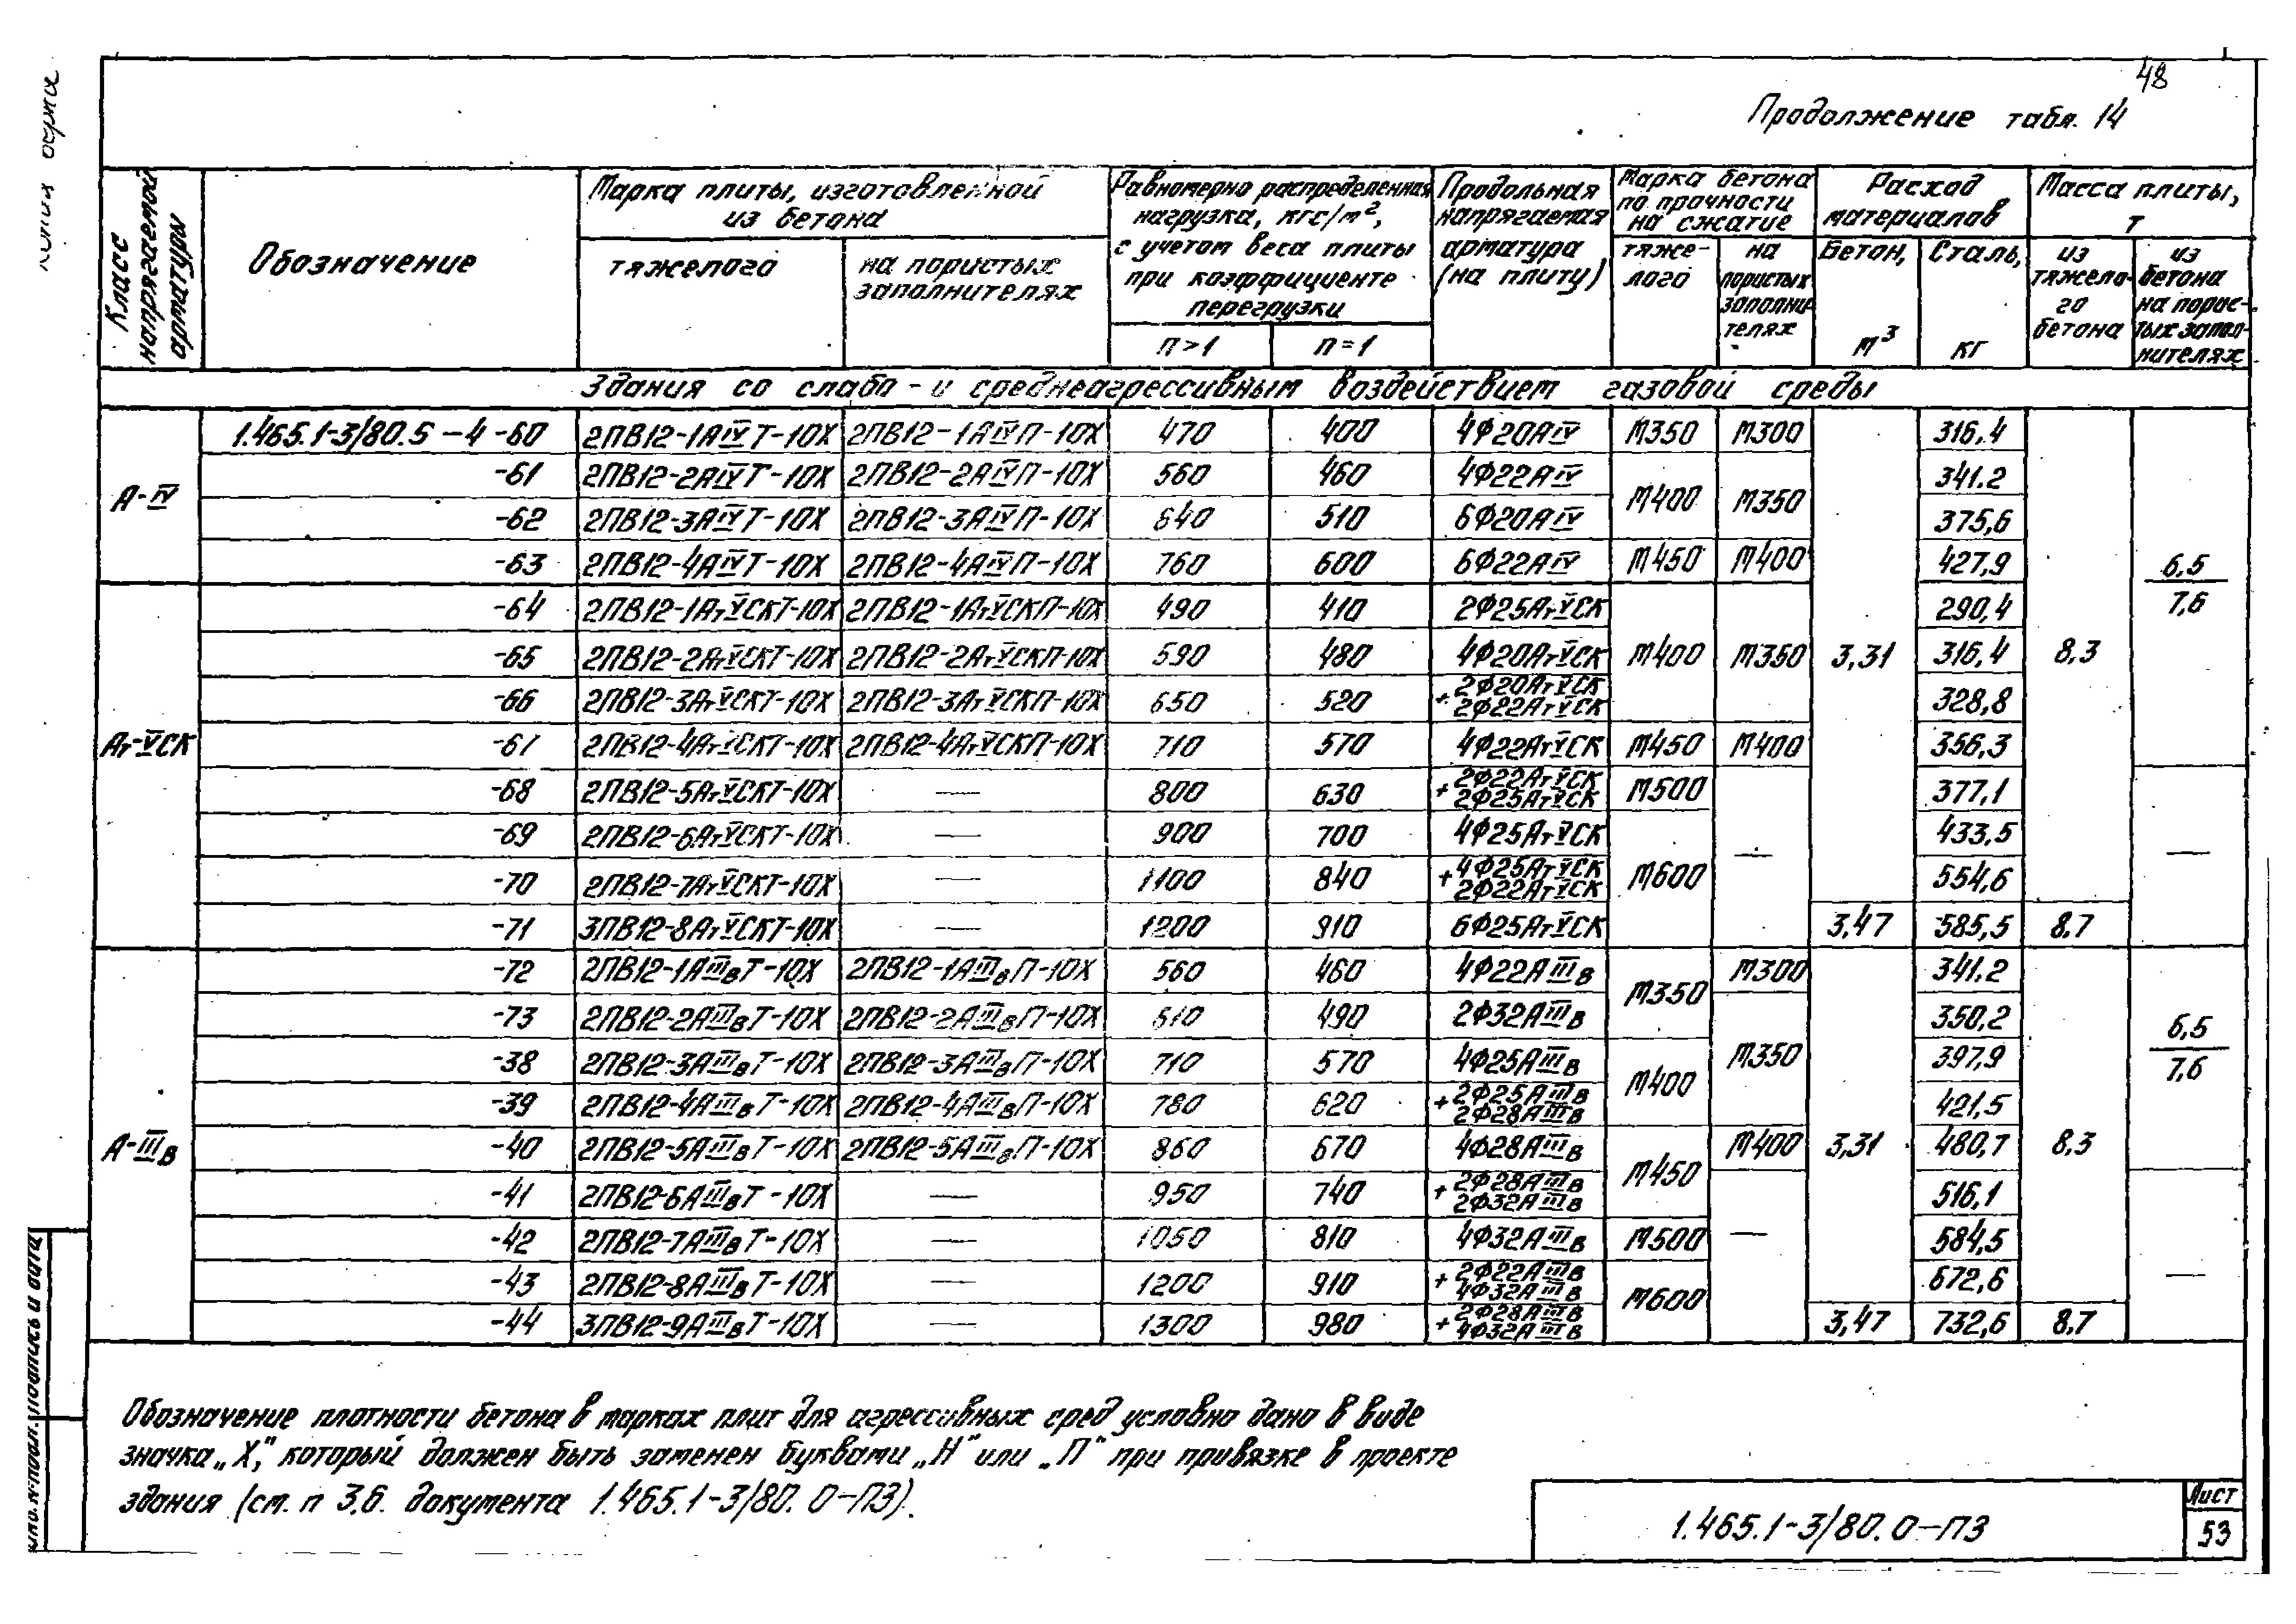 48
Продолжение табл. 14
копия верна
Класс напрягаемой арматуры
Обозначение
Марка плиты, изготовленной из бетона
тяжелого
на пористых заполнителях
Равномерно распределенная нагрузка, кгс/м², с учетом веса плиты при коэффициенте перегрузки
n>1
n=1
Продольная напрягаемая арматура (на плиту)
Марка бетона по прочности на сжатие
тяжелого
на пористых заполнителях
Расход материалов
Бетон, м³
Сталь, кг
Масса плиты, т
из тяжелого бетона
из бетона на пористых заполнителях
Здания со слабо- и среднеагрессивным воздействием газовой среды
А-IV
1.465.1-3/80.5-4-60 2ПВ12-1АIVТ-10Х 2ПВ12-1АIVП-10Х 470 400 4Ф20АIV М350 М300 316.4
-61 2ПВ12-2АIVТ-10Х 2ПВ12-2АIVП-10Х 560 460 4Ф22АIV М400 М350 341.2
-62 2ПВ12-3АIVТ-10Х 2ПВ12-3АIVП-10Х 640 510 6Ф20АIV 375,6
-63 2ПВ12-4АIVТ-10Х 2ПВ12-4АIVП-10Х 760 600 6Ф22АIV М450 М400 427,9 6,5/7,6
Ат-VСК
-64 2ПВ12-1АтVСКТ-10Х 2ПВ12-1АтVСКП-10Х 490 410 2Ф25АтVСК 290,4
-65 2ПВ12-2АтVСКТ-10Х 2ПВ12-2АтVСКП-10Х 590 480 4Ф20АтVСК М400 М350 3,31 316,4 8,3
-66 2ПВ12-3АтVСКТ-10Х 2ПВ12-3АтVСКП-10Х 650 520 2Ф20АтVСК + 2Ф22АтVСК 328,8
-67 2ПВ12-4АтVСКТ-10Х 2ПВ12-4АтVСКП-10Х 710 570 4Ф22АтVСК М450 М400 356,3
-68 2ПВ12-5АтVСКТ-10Х — 800 630 2Ф22АтVСК + 2Ф25АтVСК М500 377,1
-69 2ПВ12-6АтVСКТ-10Х — 900 700 4Ф25АтVСК — 433,5 —
-70 2ПВ12-7АтVСКТ-10Х — 1100 840 4Ф25АтVСК + 2Ф22АтVСК М600 554,6
-71 3ПВ12-8АтVСКТ-10Х — 1200 910 6Ф25АтVСК 3,47 585,5 8.7
А-IIIв
-72 2ПВ12-1АIIIвТ-10Х 2ПВ12-1АIIIвП-10Х 560 460 4Ф22АIIIв М350 М300 341.2
-73 2ПВ12-2АIIIвТ-10Х 2ПВ12-2АIIIвП-10Х 610 490 2Ф32АIIIв 350,2 6,5/7,6
-38 2ПВ12-3АIIIвТ-10Х 2ПВ12-3АIIIвП-10Х 710 570 4Ф25АIIIв М400 М350 397,9
-39 2ПВ12-4АIIIвТ-10Х 2ПВ12-4АIIIвП-10Х 780 620 2Ф25АIIIв + 2Ф28АIIIв 421,5
-40 2ПВ12-5АIIIвТ-10Х 2ПВ12-5АIIIвП-10Х 860 670 4Ф28АIIIв М450 М400 3,31 480,7 8,3
-41 2ПВ12-6АIIIвТ-10Х — 950 740 2Ф28АIIIв + 2Ф32АIIIв 516,1
-42 2ПВ12-7АIIIвТ-10Х — 1050 810 4Ф32АIIIв М500 — 584,5
-43 2ПВ12-8АIIIвТ-10Х — 1200 910 2Ф22АIIIв + 4Ф32АIIIв М600 672,6 —
-44 3ПВ12-9АIIIвТ-10Х — 1300 980 2Ф28АIIIв + 4Ф32АIIIв 3,47 732,6 8,7
Обозначение плотности бетона в марках плит для агрессивных сред условно дано в виде
значка „Х”, который должен быть заменен буквами „Н” или „П” при привязке в проекте
здания (см. п 3.6. документа 1.465.1-3/80. 0-ПЗ).
1.465.1-3/80. 0-ПЗ
Лист
53
Инв.№подл. Подпись и дата